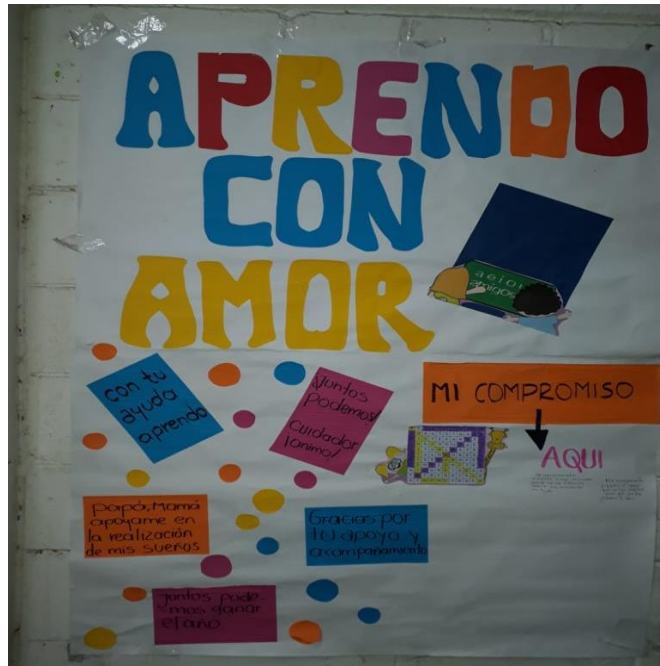 APRENDO
CON
AMOR
a e i o u
amigos
con tu
ayuda
aprendo
¡Juntos
podemos!
cuidador
¡animo!
MI COMPROMISO
AQUI
Papá, Mamá
apoyame en
la realización
de mis sueños
Gracias por
tu apoyo y
acompañamiento
Juntos pode-
mos ganar
el año